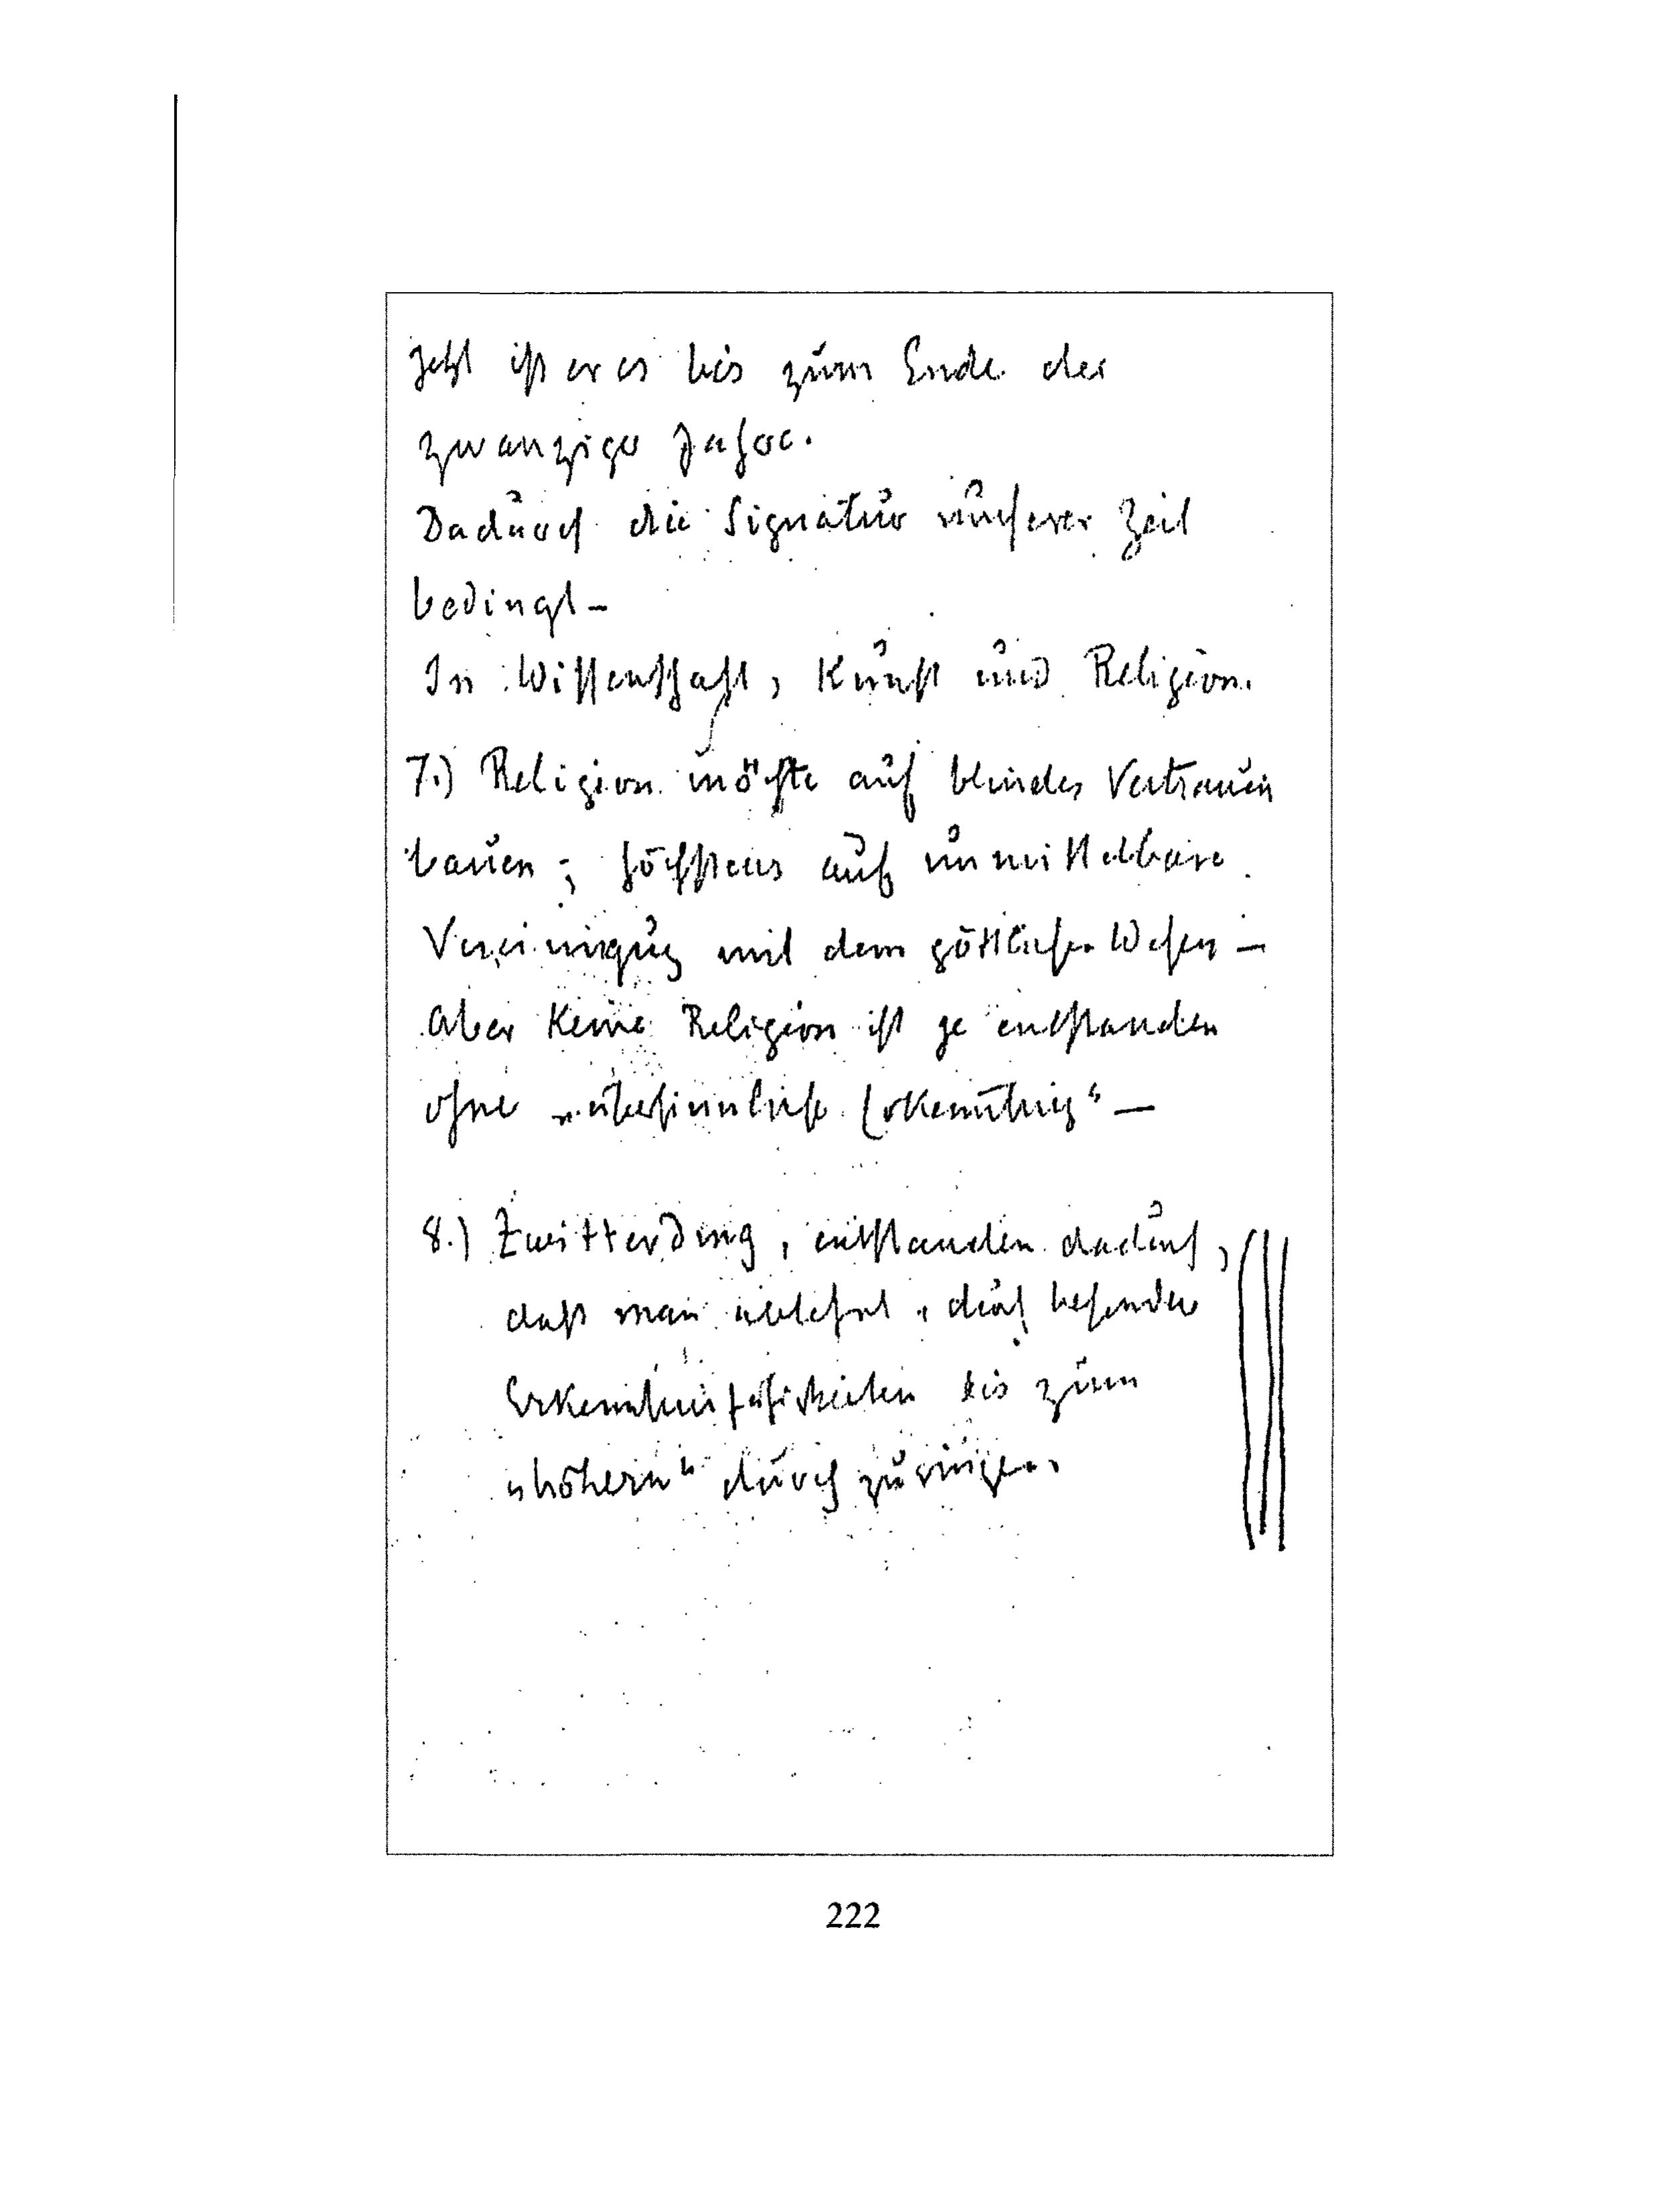 Jetzt ist er es bis zum Ende der
zwanziger Jahre.
Dadurch die Signatur unserer Zeit
bedingt –
In Wissenschaft, Kunst und Religion.
7.) Religion möchte auf blindes Vertrauen
bauen; höchstens auf unmittelbare
Vereinigung mit dem göttlichen Wesen –
Aber keine Religion ist je entstanden
ohne „übersinnliche Erkenntnis“ –
8.) Zwitterding, entstanden dadurch,
daß man ablehnt, durch besondere
Erkenntnisfähigkeiten bis zum
„höhern“ durchzudringen.
222